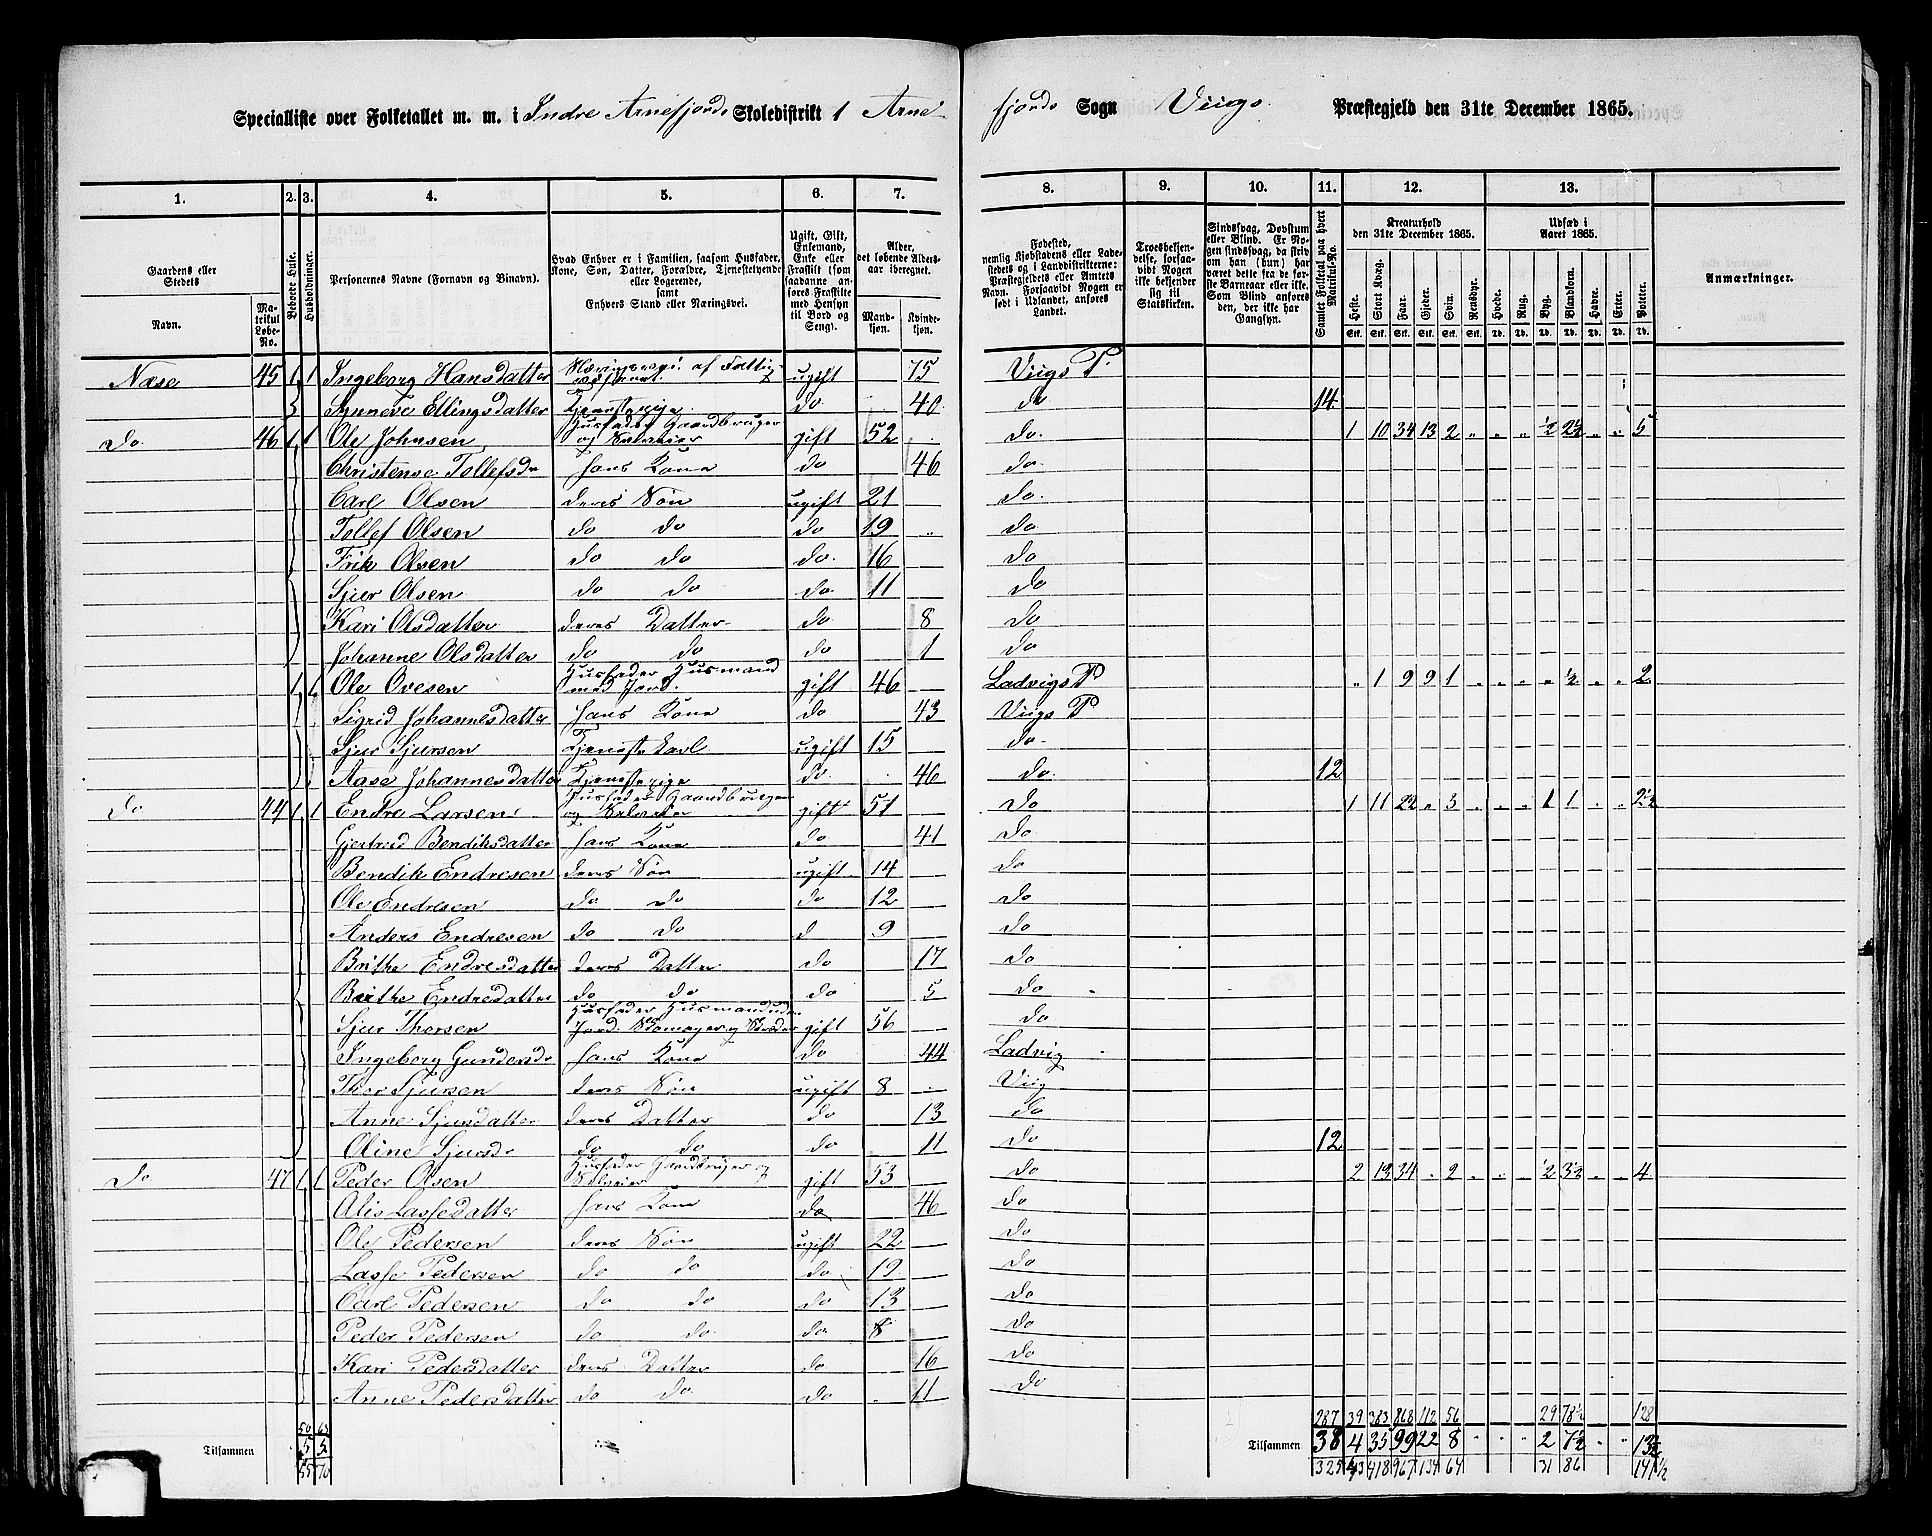 Specialliste over Folketallet m. m. i Indre Arnefjords Skoledistrikt 1 Arne-
fjords Sogn Viigs Præstegjeld den 31te December 1865.
1. 2. 3. 4. 5. 6. 7. 8. 9. 10. 11. 12. 13.
Gaardens eller Stedets
Navn.
Matrikul Løbe-No.
Beboede Huse.
Husholdninger.
Personernes Navne (Fornavn og Binavn).
Hvad Enhver er i Familien, saasom Husfader, Kone, Søn, Datter, Forældre, Tjenestetyende eller Logerende, samt Enhvers Stand eller Næringsvei.
Ugift, Gift, Enkemand, Enke eller Fraskilt (som saadanne anføres Fraskilte med Hensyn til Bord og Seng).
Alder, det løbende Aldersaar iberegnet.
Mandkjøn. Kvindekjøn.
Fødested, nemlig Kjøbstadens eller Ladestedets og i Landdistrikterne: Præstegjeldets eller Amtets Navn. Forsaavidt Nogen er født i Udlandet, anføres Landet.
Troesbekjendelse, forsaavidt Nogen ikke bekjender sig til Statskirken.
Sindssvag, Døvstum eller Blind. Er Nogen sindssvag, da skrives om han (hun) har været dette fra de første Barneaar eller ikke. Som Blind anføres den, der ikke har Gangsyn.
Samlet Folketal paa hvert Matrikul-No.
Kreaturhold den 31te December 1865.
Heste. Stort Kvæg. Faar. Gjeder. Sviin. Rensdyr.
Udsæd i Aaret 1865.
Hvede. Rug. Byg. Blandkorn. Havre. Erter. Poteter.
Anmærkninger.
Næse 45 1 1 Ingeborg Hansdatter ugift 75 Viigs P.
Synneve Ellingsdatter Tjenestepige do 40 do 14
Do. 46 1 1 Ole Johnsen Husfader Gaardbruger og Selveier gift 52 Do. 1 10 34 13 2 " " " ½ 2½ " " 5
Christense Tollefsdr hans Kone do 46 do.
Carl Olsen deres Søn ugift 21 do.
Tollef Olsen do do do 19 do
Erik Olsen do do do. 16 do
Sjur Olsen do do do. 11 do
Kari Olsdatter deres Datter do 8 do
Johanne Olsdatter do do do 1 do
1 1 Ole Ovesen Husfader Husmand med Jord. gift 46 Ladvigs P " 1 9 9 1 " " " " ½ " " 2
Sigrid Johannesdatter hans Kone do 43 Viigs P
Sjur Sjursen Tjenestekarl ugift 15 do.
Aase Johannesdatter Tjenestepige do. 46 do. 12
Do 44 1 1 Endre Larsen Husfader Gaardbruger og Selveier gift 51 Do 1 11 22 " 3 " " " 1 1 " " 2½
Gjertrud Bendiksdatter hans Kone do 41 do
Bendik Endresen deres Søn ugift 14 do
Ole Endresen do do do 12 do
Anders Endresen do do d 9 do
Brithe Endresdatter deres Datter do 17 do
Brithe Endresdatter do do do 5 do
Sjur Thorsen Husfader Husmand uden Jord. Skomager og gift 56 do
Ingeborg Gundersdr hans Kone do 44 Ladvig
Thor Sjursen deres Søn ugift 8 Viig
Anne Sjursdatter deres Datter do 13 do
Oline Sjursdr do do do 11 do 12
Do 47 1 1 Peder Olsen Husfader Gaardbruger og Selveier gift 53 do 2 13 34 " 2 " " " ½ 3½ " " 4
Alis Lassedatter hans Kone do 46 do
Ole Pedersen deres Søn ugift 22 do
Lasse Pedersen do do do 19 do
Carl Pedersen do do do 13 do
Peder Pedersen do do do 8 do
Kari Pedersdatter deres Datter do 16 do
Anne Pedersdatter do do do 11 do
50 65 287 39 383 868 112 56 29 78½ 128
Tilsammen 5 5 Tilsammen 38 4 35 99 22 8 2 7½ 13½
55 70 325 43 418 967 134 64 31 86 141½